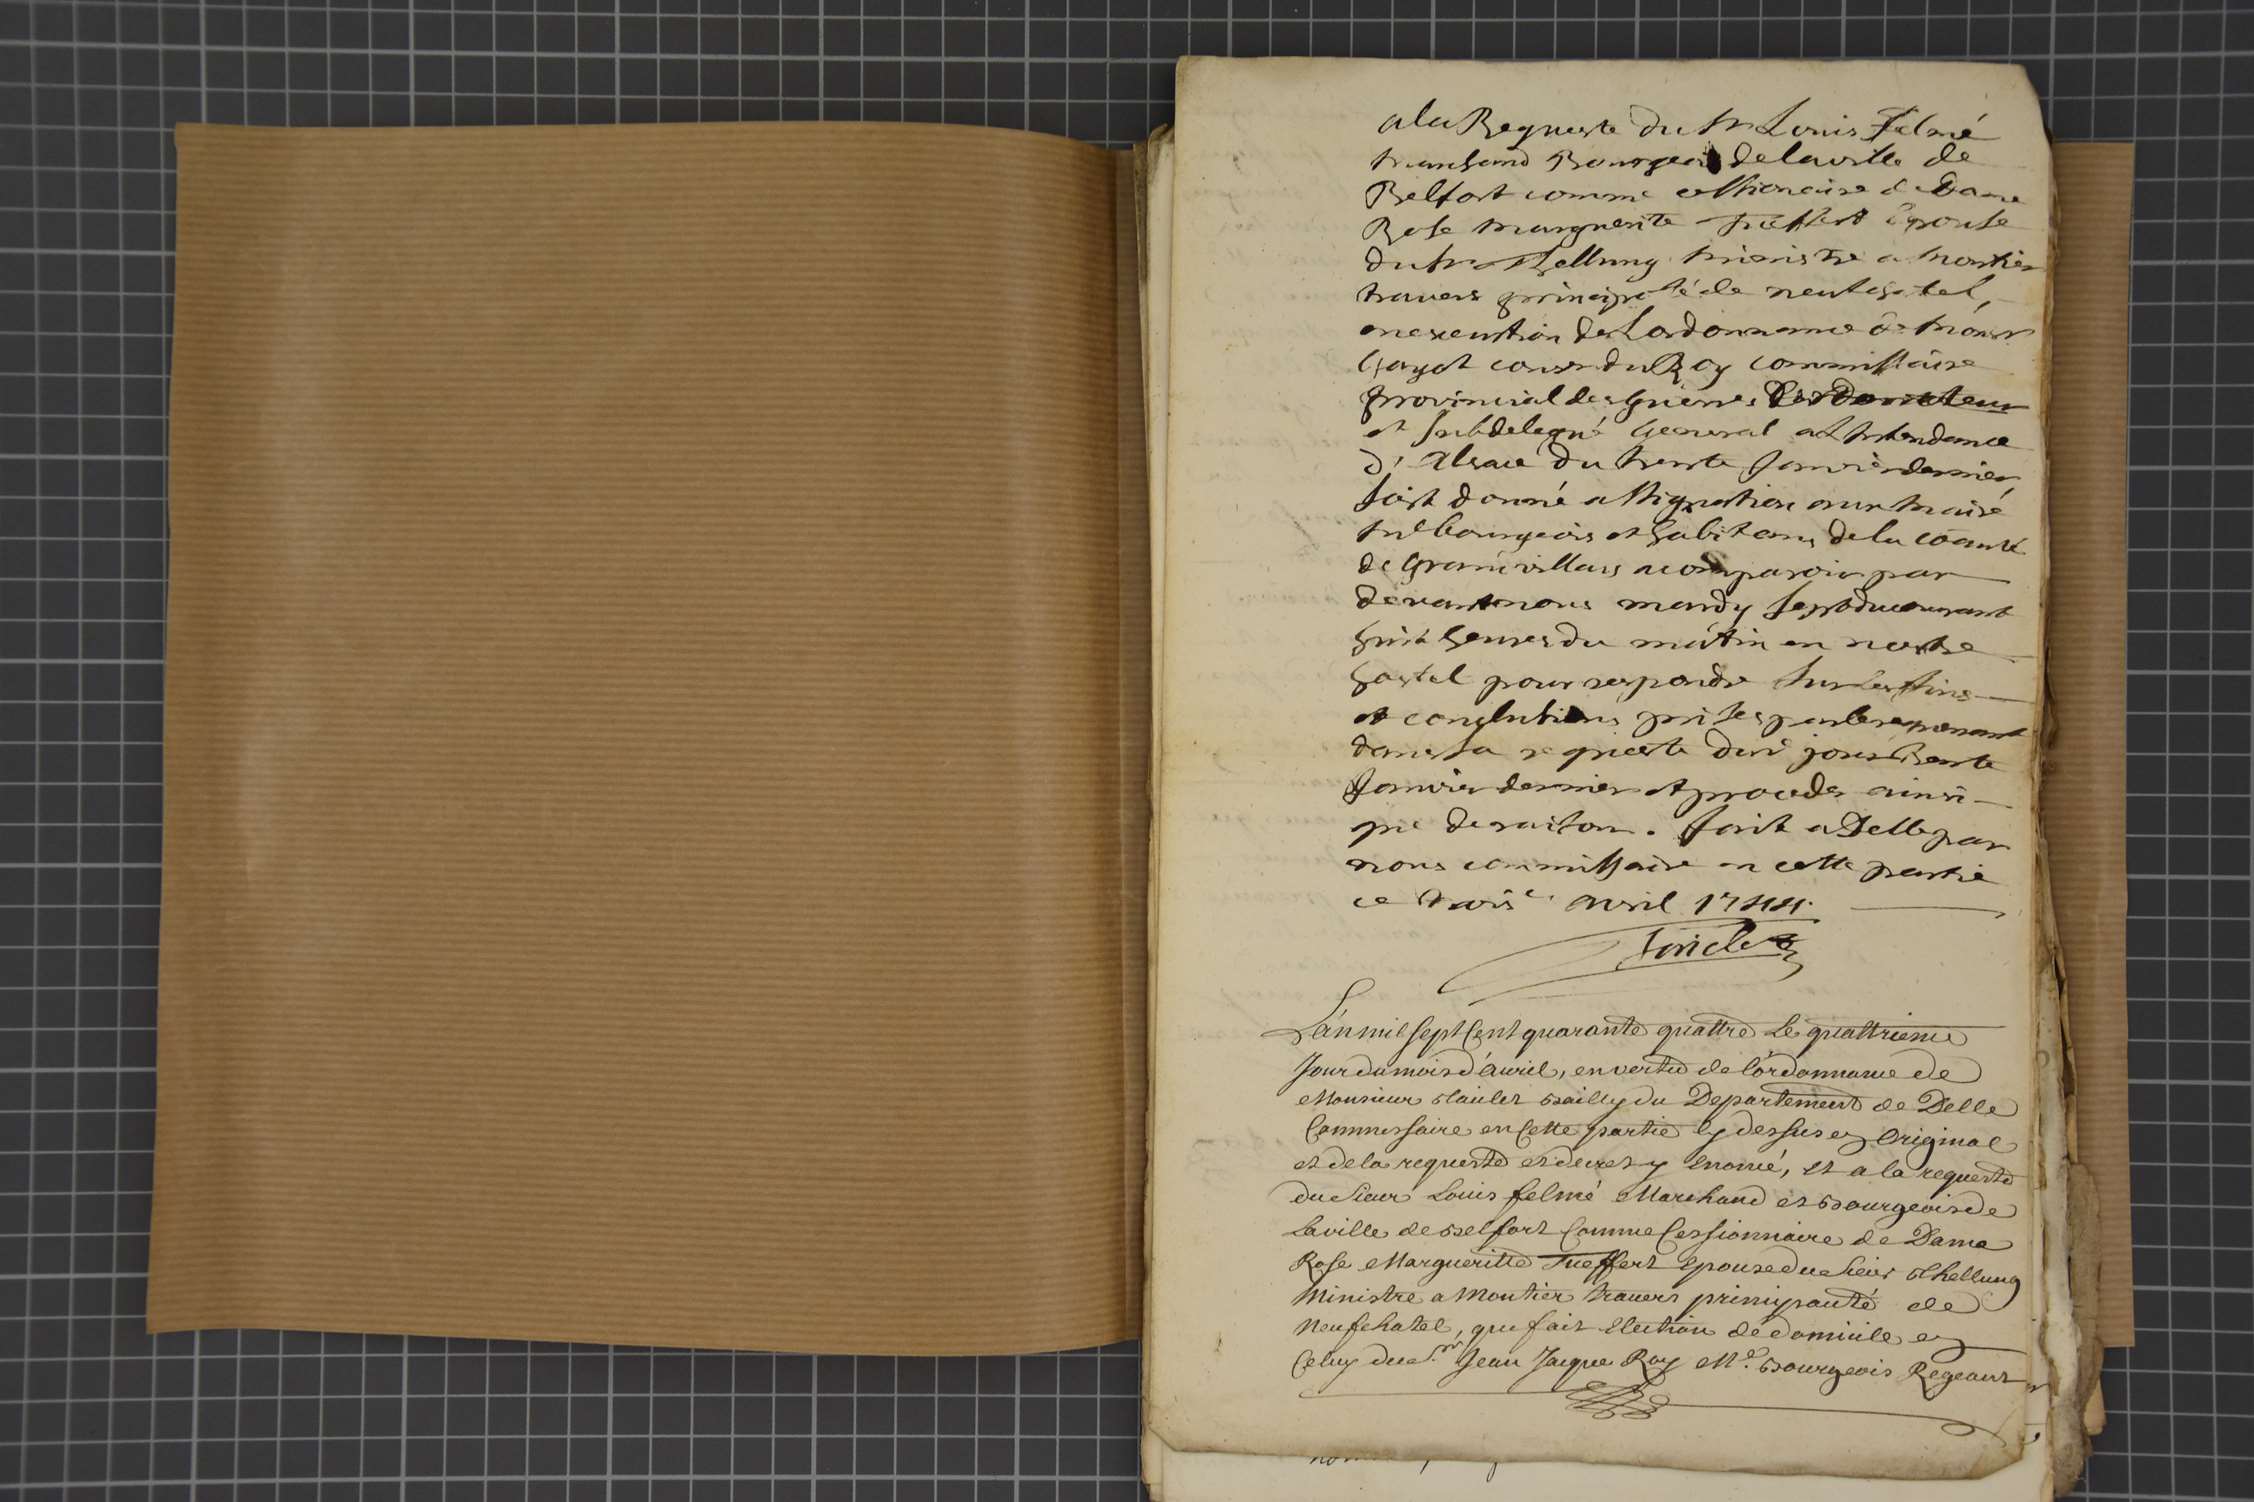 a la Requeste du Sr Louis Felmé
marchand Bourgeois de la ville de
Belfort comme cessionaire de Dame
Rose marguerite Tueffert Epouse
du Sr Thellung ministre a Montier
travers principoté de neufchatel,
en execution de Lordonnance de Monsr
Gayot conser du Roy commissaire
provincial des guerres Lordonnateur
et subdelegué General a L Intendance
d'Alsace du trente Janvier dernier,
soit donné assignation aux maire
bourgeois et habitans de la coãnté
de Granvillars a comparoir par
devant nous mardy sept du courant
huit heures du mátin en nostre
hostel pour respondre sur les fins
et conclusions prises par le
dans sa requeste dud jour trente
Janvier dernier et proceder ainsi
que de raison. fait a Delle par
nous commissaire en cette partie
ce troise avril 1744.
L'an mil sept Cent quarante quattre Le quattrieme
Jour du mois d'avril, en vertu de l'ordonnance de
Monsieur bailly du Departement de Delle
Commissaire en Cette partie Cy dessus en Original
et de la requeste et decret y enoncé, et a la requeste
du Sieur Louis felmé Marchand et bourgeois de
la ville de belfort Comme Cessionnaire de Dame
Rose Margueritte Tueffert Epouse du Sieur Thellung
Ministre a Moutier travers principauté de
Neufchatel, que fait Election de domicile en
Celuy du Sr. Jean Jacque Roy Me. bourgeois Regeant